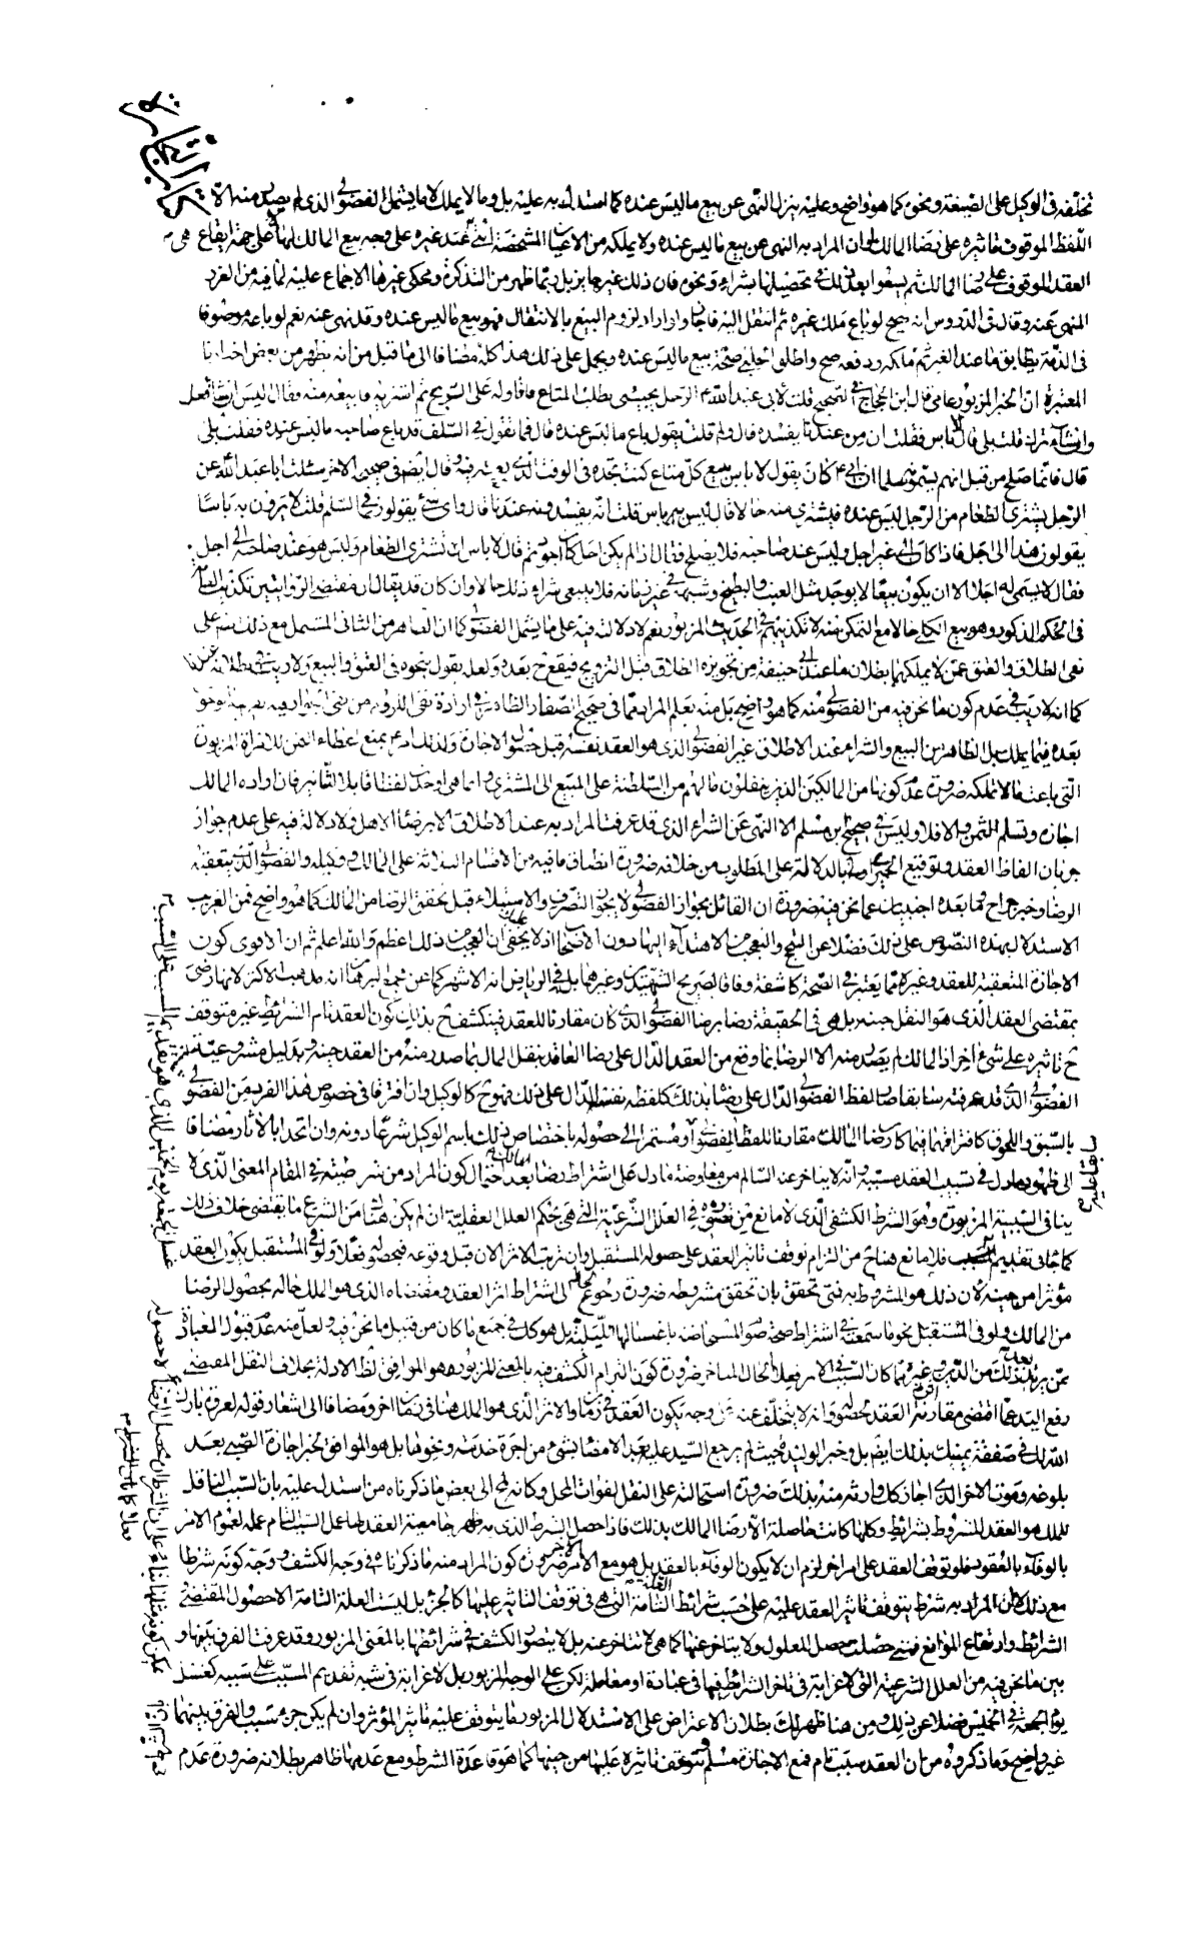 كتاب التجارة
تخلفه في الوكيل على الصيغة ونحوه كما هو واضح وعليه ينزل النهي عن بيع ما ليس عنده كما استدل به عليه بل وما لا يملك لا ما يشمل الفضولي الذي لم يصدر منه الا
اللفظ الموقوف تاثيره على رضا المالك ان المراد به النهي عن بيع ما ليس عنده ولا يملكه من الاعيان المشخصة التي عند غيره على وجه بيع المالك لها لا على جهة ايقاع
العقد الموقوف على رضا المالك ثم يسعوا بعد ذلك في تحصيلها بشراء ونحوه فان ذلك غير جايز بل ربما ظهر من التذكرة ومحكي غيرها الاجماع عليه لما فيه من الغرر
المنهي عنه وقال في الدروس انه صح لو باع ملك غيره ثم انتقل اليه فاجاز ولو اراد لزوم البيع بالانتقال فهو بيع ما ليس عنده وقد نهي عنه نعم لو باعه موصوفا
في الذمة يطابق ما عند الغير ثم ملكه ودفعه صح واطلق الحلي صحة بيع ما ليس عنده ويحمل على ذلك هذا كله مضافا الى ما قيل من انه يظهر من بعض اخبارنا
المعتبرة ان الخبر المزبور عامي قال ابن الحجاج في الصحيح قلت لابي عبد الله الرجل يجيئني يطلب المتاع فاقاوله على الربح ثم اشتريه فابيعه منه فقال اليس ان شاء فعل
وان شاء ترك قلت بلى قال لا باس فقلت ان من عندنا يفسده قال ولم قلت يقول باع ما ليس عنده قال فما يقول في السلف قد باع صاحبه ما ليس عنده فقلت بلى
قال فانما صلح من قبل انهم يسمونه سلما ان ابي كان يقول لا باس ببيع كل متاع كنت تجده في الوقت الذي بعته فيه وقال ايضا في صحيحه الاخر سئلت ابا عبد الله عن
الرجل يشتري الطعام من الرجل ليس عنده فيشتري منه حالا قال ليس به باس قلت انه يفسدونه عندنا قال واي شيء يقولون في السلم قلت لا يرون به باسا
يقولون هذا الى اجل فاذا كان الى غير اجل وليس عند صاحبه فلا يصلح فقال اذا لم يكن اجل كان احق به ثم قال لا باس ان يشتري الطعام وليس هو عند صاحبه الى اجل
فقال لا يسمي له اجلا الا ان يكون بيعا لا يوجد مثل العنب والبطيخ وشبهه في غير زمانه فلا ينبغي شراء ذلك حالا وان كان قد يقال ان مقتضى الروايتين تكذيب العامة
في الحكم المذكور وهو بيع الكلي حالا مع التمكن منه لا تكذيبهم في الحديث المزبور نعم لا دلالة فيه على ما يشمل الفضولي كما ان الظاهر من الثاني المشتمل مع ذلك على
نفي الطلاق والعتق عمن لا يملكهما بطلان ما عند ابي حنيفة من تجويزه الطلاق قبل التزويج فيقع بعده ولعله يقول بنحوه في العتق والبيع ولا ريب في بطلانه عندنا
كما انه لا ريب في عدم كون ما نحن فيه من الفضولي منه كما هو واضح بل منه يعلم المراد مما في صحيح الصفار الظاهر في ارادة نفي اللزوم من نفي الجواز فيه
بعده فيما يملك بل الظاهر من البيع والشراء عند الاطلاق غير الفضولي الذي هو العقد نفسه قبل حصول الاجازة ولذلك لم يمنع اعطاء الثمن للامراة المزبورة
التي باعت ما لا تملكه ضرورة عدم كونها من المالكين الذين ينقلون ما لهم من السلطنة على المبيع الى المشتري وانما هي اوجدت لفظا قابلا للتاثير فان اراده المالك
اجازه وتسلم الثمن والا فلا وليس في صحيح ابن مسلم الا النهي عن الشراء الذي قد عرفت المراد به عند الاطلاق الا برضا الاهل ولا دلالة فيه على عدم جواز
جريان الفاظ العقد وتوقيع الحميري اوضح بالدلالة على المطلوب من خلافه ضرورة انطباق ما فيه من الاقسام الثلاثة على المالك ووكيله والفضولي الذي يتعقبه
الرضا وخبر جراح وما بعده اجنبيان عما نحن فيه ضرورة ان القائل بجواز الفضولي لا يجوز التصرف والاستيلاء قبل تحقق الرضا من المالك كما هو واضح فمن الغريب
الاستدلال بهذه النصوص على ذلك فضلا عن التبجح والتعجب من الاهتداء اليها دون الاصحاب اذ لا يخفى ان العجب من ذلك اعظم والله اعلم ثم ان الاقوى كون
الاجازة المتعقبة للعقد وغيره مما يعتبر في الصحة كاشفة وفاقا لصريح الشهيدين وغيرهما بل في الرياض انه الاشهر كما عن مجمع البرهان انه مذهب الاكثر لانها رضى
بمقتضى العقد الذي هو النقل حينه بل هو في الحقيقة رضا برضا الفضولي الذي كان مقارنا للعقد فينكشف بذلك كون العقد تام الشرائط غير متوقف
تاثيره على شيء اخر اذ المالك لم يصدر منه الا الرضا بما وقع من العقد الدال على رضا العاقد بنقل المال بما صدر منه من العقد حينه وبدليل مشروعية
الفضولي الذي قد عرفته سابقا صار لفظ الفضولي الدال على رضاه بذلك كلفظه نفسه الدال على ذلك فهو كالوكيل وان افترقا في خصوص هذا الفرد من الفضولي
بالسبق واللحوق كافتراقهما فيما كان رضا المالك مقارنا للفظ الفضولي او مستمرا الى حصوله باختصاص ذلك باسم الوكيل شرعا دونه وان اتحدا بالاثار مضافا
الى ظهور ما دل في تسبيب العقد مسببه وانه لا يتاخر عنه السالم من معارضة ما دل على اشتراط رضا المالك بعد احتمال كون المراد من شرطيته في المقام المعنى الذي لا
ينافي السببية المزبورة وهو الشرط الكشفي الذي لا مانع من تصوره في العلل الشرعية التي هي بحكم العلل العقلية ان لم يكن هناك من الشرع ما يقتضي خلاف ذلك
كما جاء في تقديم المسبب فلا مانع هناك من التزام توقف تاثير العقد على حصوله المستقبل وان ترتب الاثر الان قبل وقوعه فبحصوله فعلا ولو في المستقبل يكون العقد
مؤثرا من حينه لان ذلك هو المشروط به فمتى تحقق بان تحقق مشروطه ضرورة رجوع الحال الى اشتراط اثر العقد ومقتضاه الذي هو الملك حاله بحصول الرضا
من المالك ولو في المستقبل نحو ما سمعته في اشتراط صحة صوم المستحاضة باغسالها الليلية بل هو كل في جميع ما كان من قبيل ما نحن فيه ولعل منه عدم قبول العبادة
ممن يرتد بعد ذلك من الدين وغيره مما كان السبب في الامر فعلا الحال المتاخر ضرورة كون التزام الكشف فيه بالمعنى المزبور هو الموافق لظاهر الادلة بخلاف النقل المقتضي
رفع اليد عما اقتضى مقارنة اثر العقد لحصوله وانه لا يتخلف عنه على وجه يكون العقد في زمان والاثر الذي هو الملك هنا في زمان اخر ومضافا الى اشعار قوله لعروة بارك
الله لك في صفقة يمينك بذلك ايضا بل وخبر الوليدة حيث لم يرجع السيد عليه بعد الامضاء بشيء من اجرة خدمته ونحوها بل هو الموافق لخبر اجازة الصبي بعد
بلوغه وموت الاخر الذي اجاز كل وارثه منه بذلك ضرورة استحالته على النقل لفوات المحل وكانه لمح الى بعض ما ذكرناه من استدل عليه بان السبب الناقل
للملك هو العقد المشروط بشرائط وكلها كانت حاصلة الا رضا المالك بذلك فاذا حصل الشرط الذي به ظهر جامعية العقد لها عمل السبب التام عمله لعموم الامر
بالوفاء بالعقود فلو توقف العقد على امر اخر لزم ان لا يكون الوفاء بالعقد بل هو مع الامر الاخر ضرورة كون المراد منه ما ذكرناه في وجه الكشف ووجه كونه شرطا
مع ذلك لا ان المراد به شرط يتوقف تاثير العقد عليه على حسب شرائط العلة التامة التي هي في توقف التاثير عليها كالجزء بل ليست العلة التامة الا حصول المقتضي
الشرائط وارتفاع الموانع فمتى حصلت حصل المعلول ولا يتاخر عنها كما هي لا تتاخر عنه بل لا يتصور الكشف في شرائطها بالمعنى المزبور وقد عرفت الفرق بينهما و
بين ما نحن فيه من العلل الشرعية التي لا غرابة في تاخر الشرائط فيها في عبادة او معاملة لكن على الوجه المزبور بل لا غرابة في شبه تقديم المسبب على سببه كغسل
يوم الجمعة في الخميس فضلا عن ذلك ومن هنا ظهر لك بطلان الاعتراض على الاستدلال المزبور بما يتوقف عليه تاثير المؤثر وان لم يكن جزء سبب والفرق بينهما
غير واضح وما ذكروه من ان العقد سبب تام فمع الاجازة مسلم وتتوقف تاثيره عليها من حينها كما هو قاعدة الشرط ومع عدمها ظاهر بطلانه ضرورة عدم